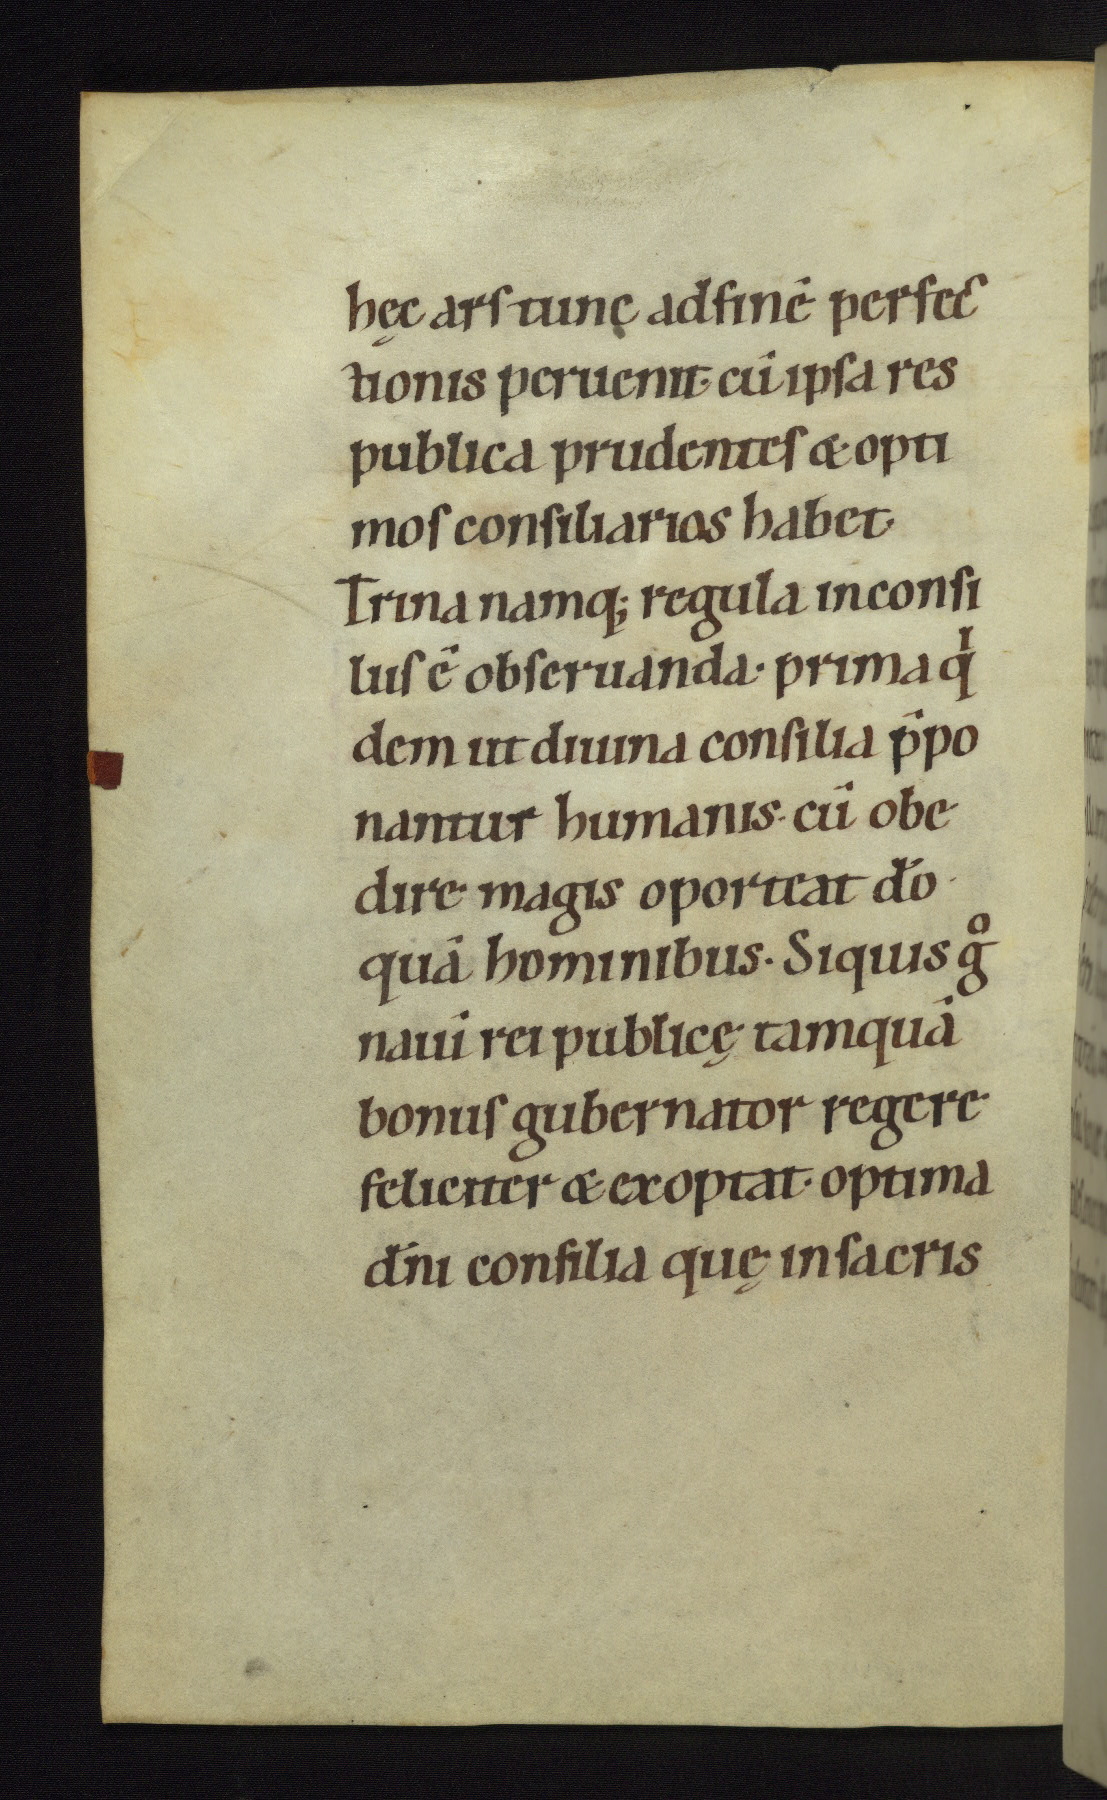 hęc arſ tunc ad finē perfec
tionis peruenit· cū ipſa res
publica prudenteſ & opti
moſ conſiliarios habet·
Trina namq; regula in conſi
liiſ ē obſeruanda· prima qͥ
dem ut diuina conſilia p̄po
nantur humanis· cū obe
dire magis oporteat dō
quā hominibus· Siquis gͦ
nauī rei publicę tamquā
bonuſ gubernator regere
feliciter & exoptat· optima
dn̄i conſilia quę in ſacris